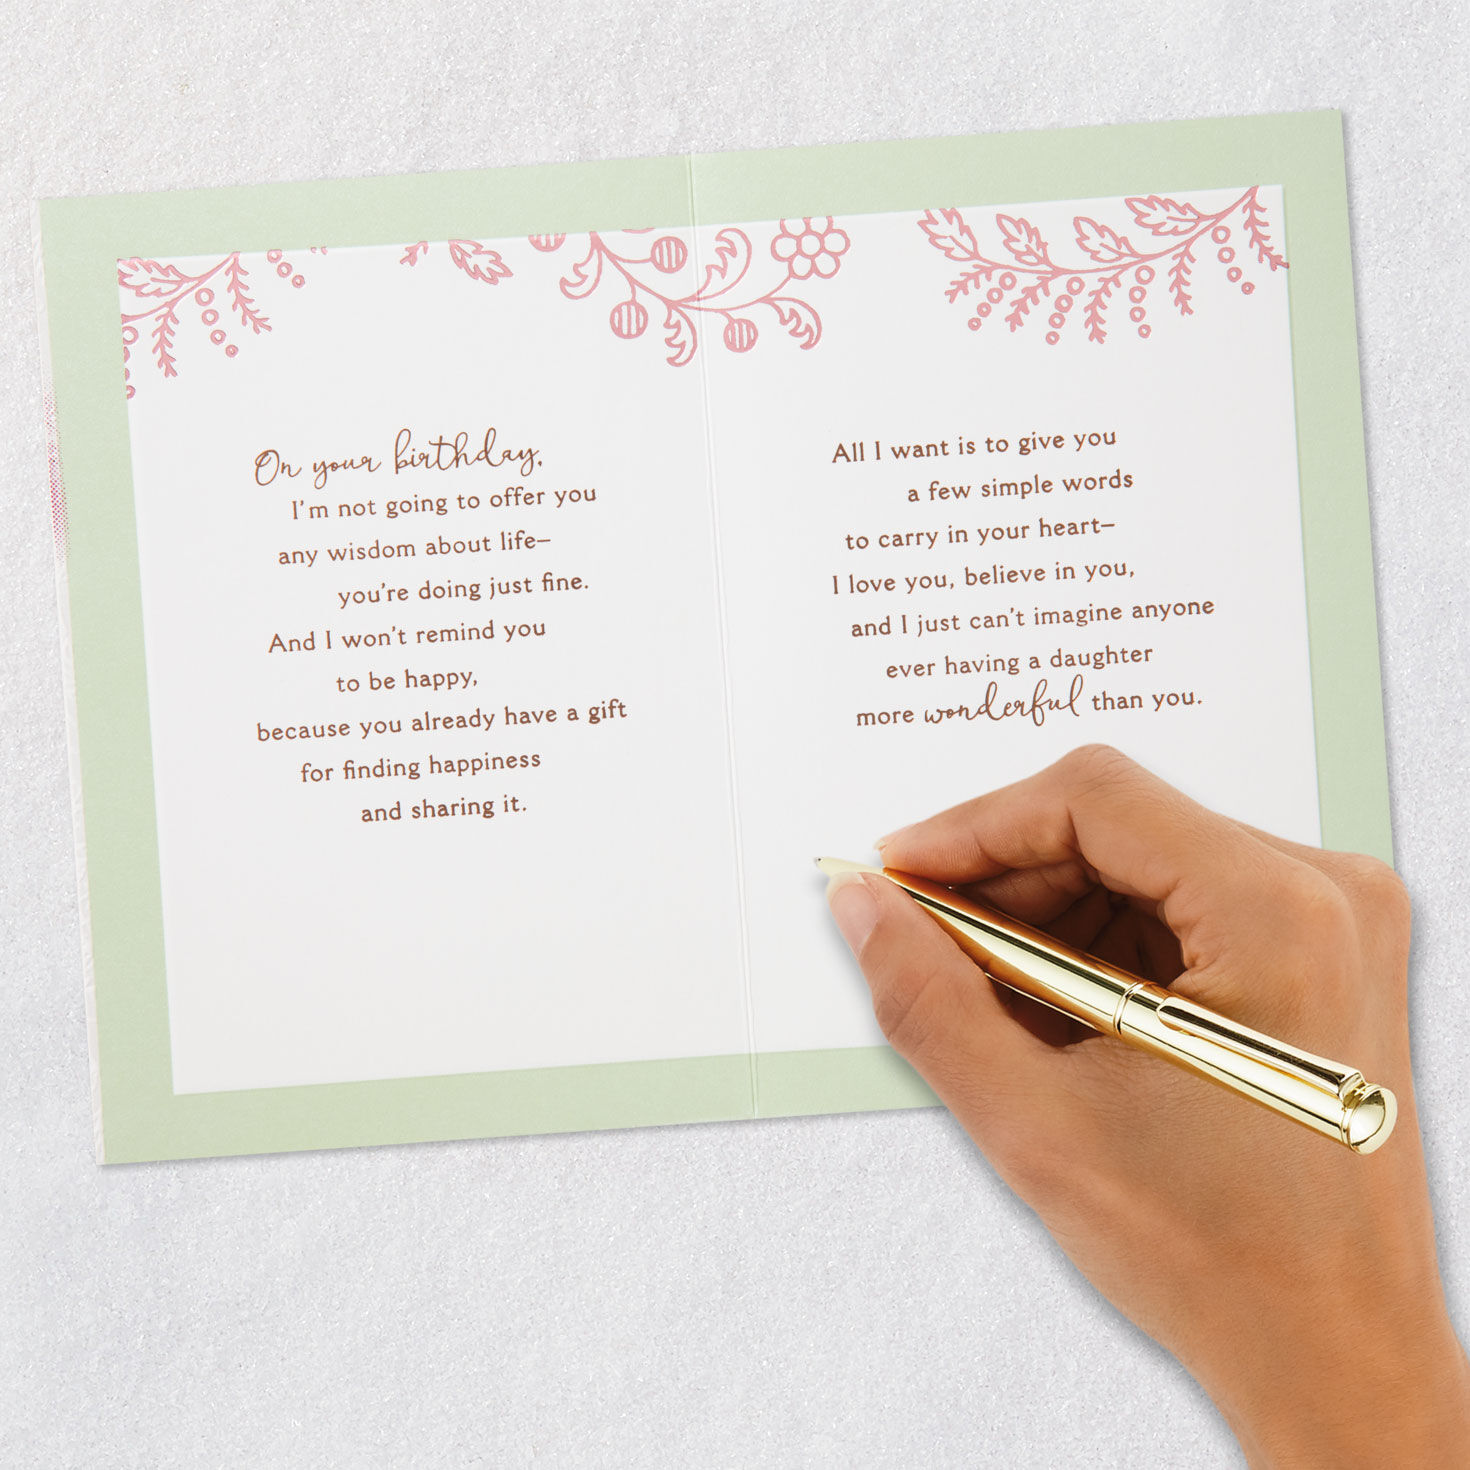 On your birthday,
I'm not going to offer you
any wisdom about life–
you're doing just fine.
And I won't remind you
to be happy,
because you already have a gift
for finding happiness
and sharing it.
All I want is to give you
a few simple words
to carry in your heart–
I love you, believe in you,
and I just can't imagine anyone
ever having a daughter
more wonderful than you.